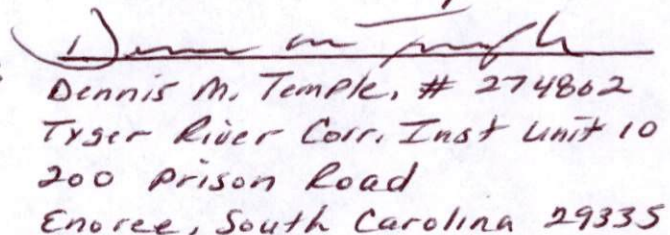 Dennis M. Temple, # 274802
Tyger River Corr. Inst Unit 10
200 Prison Road
Enoree, South Carolina 29335